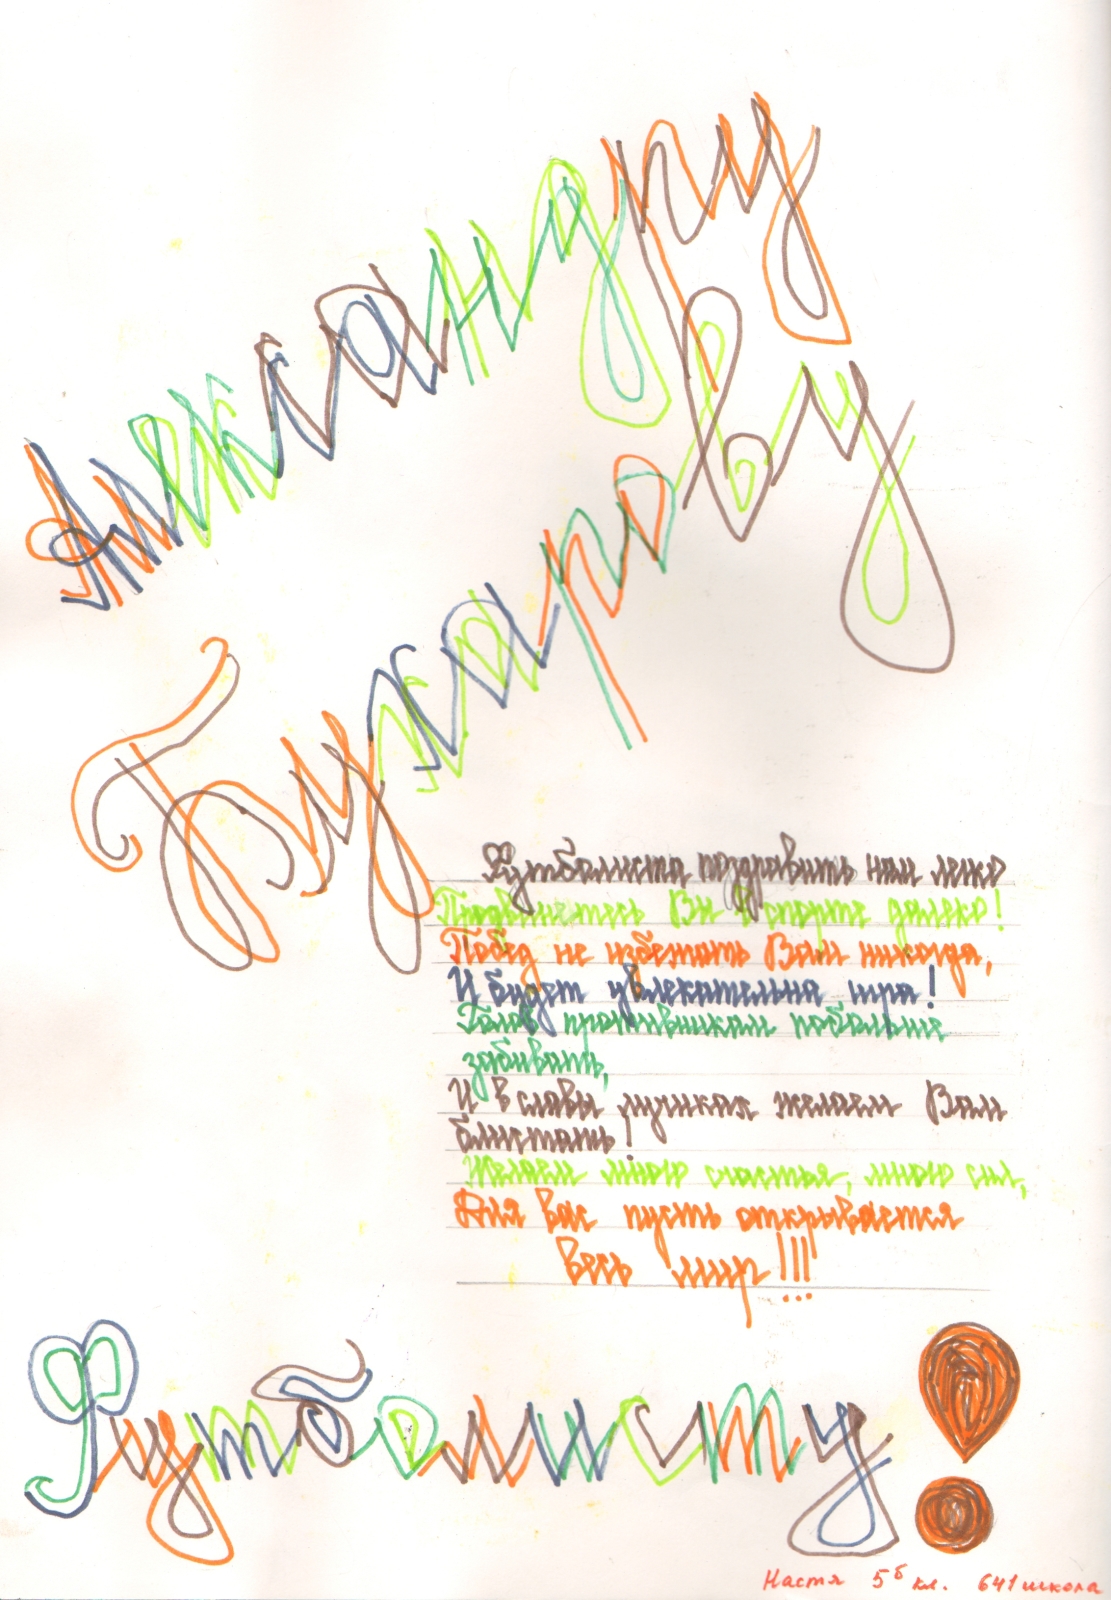 Александру
Бухарову
Футболиста поздравить нам легко
Продвинетесь Вы в спорте далеко!
Побед не избежать Вам никогда,
И будет увлекательна игра!
Голов противникам побольше
забивать,
И в славы лучиках желаем Вам
блистать!
Желаем много счастья, много сил,
Для вас пусть открывается
весь мир!!!
Футболисту!
Настя 5б кл. 641 школа